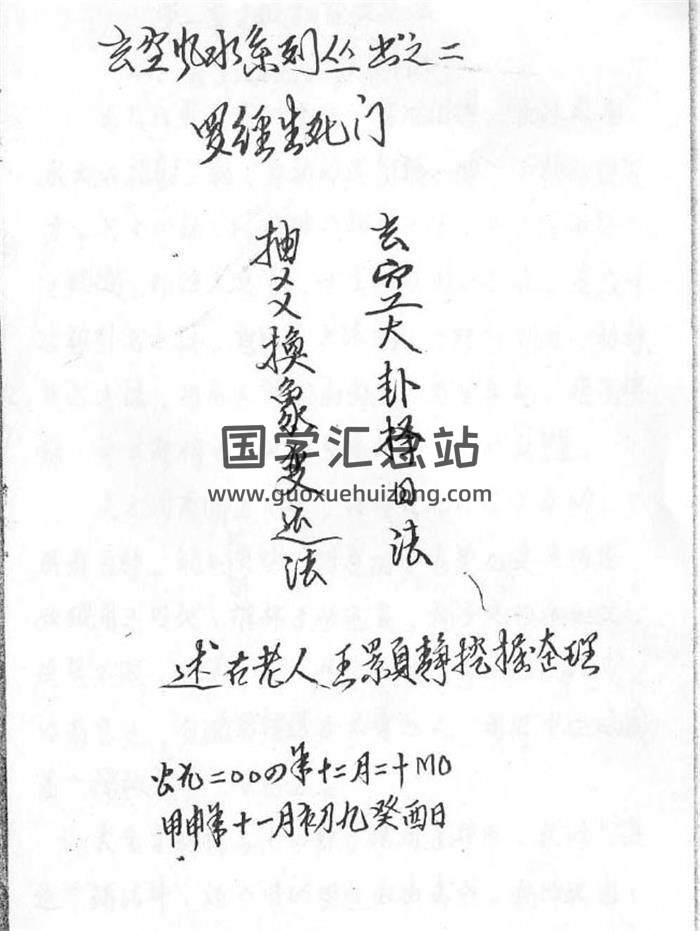 玄空风水系列丛书之二
罗经生死门
玄空大卦择日法
抽爻换象变还法
国学汇总站
www.guoxuehuizong.com
述古老人王景颢静挖掘整理
公元二〇〇四年十二月二十日
甲申年十一月初九癸酉日